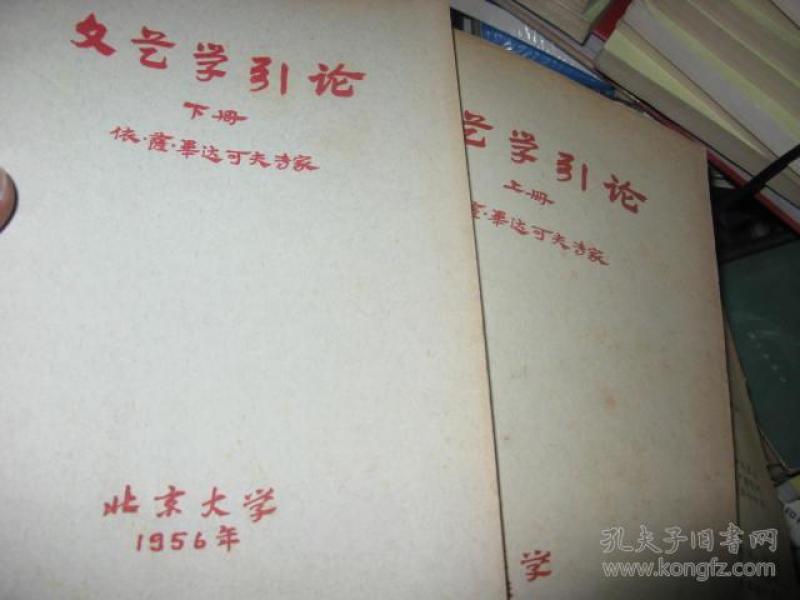 文艺学引论
下册
依·薩·畢达可夫专家
北京大学
1956年
艺学引论
上册
薩·畢达可夫专家
学
孔夫子旧书网
www.kongfz.com